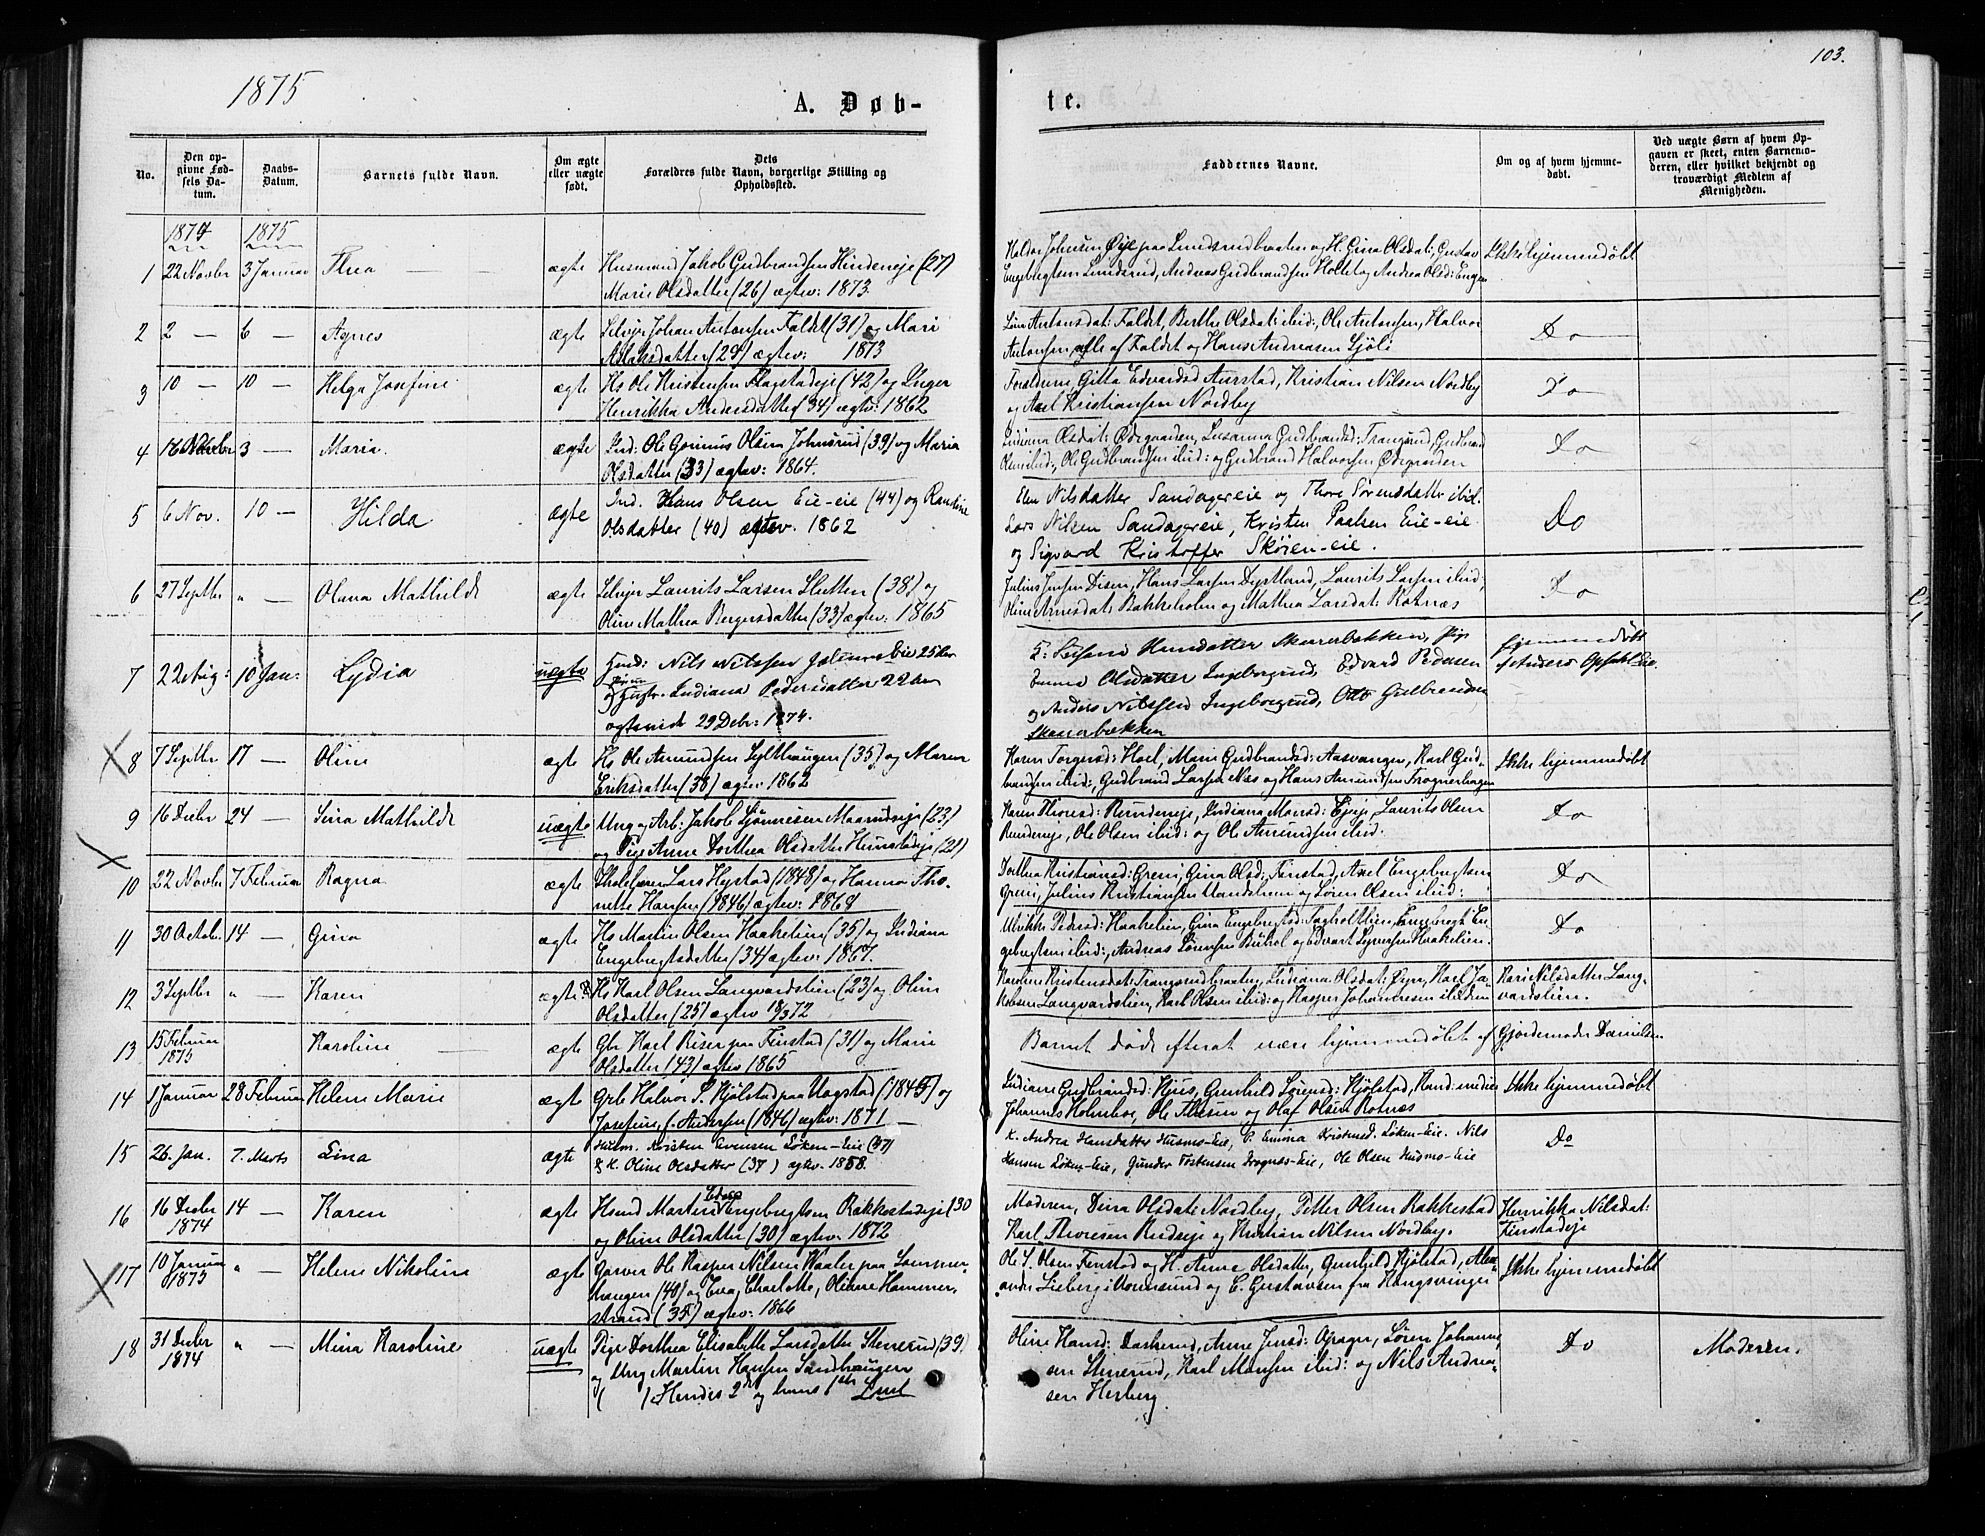 103.
1875
A. Døb-
te.
No.
Den op-
givne Fød-
sels Da-
tum.
Daabs-
Datum.
Barnets fulde Navn.
Om ægte
eller uægte
født.
Dets
Forældres fulde Navn, borgerlige Stilling og
Opholdssted.
Faddernes Navne.
Om og af hvem hjemme-
døbt.
Ved uægte Børn af hvem Op-
gaven er skeet, enten Barnemo-
deren, eller hvilket bekjendt og
troværdigt Medlem af
Menigheden.
1874 1875
1 22 Novbr 3 Januar Thea — ægte Husmand Jakob Gudbrandsen Hindeneje (27)
Marie Olsdatter (26) ægtev: 1873.
Haldor Johnsen Øye paa Lundsrudbraaten og H. Gina Olsdat: Gustav
Engebregtsen Lundsrud, Andreas Gudbrandsen Holtet og Andrea Olsd: Engen
Ikke hjemmedøbt
2 2 — 6 — Agnes ægte Selvejer Johan Antonsen Faldet (31) og Mari
Aslaksdatter (29) ægtev: 1873
Antonsdat: Faldet, Berthe Olsdat: ibid:, Ole Antonsen, Halvor
Antonsen alle af Faldet og Hans Andreasen Sjöli
Do
3 10 — 10 — Helga Josefine ægte Hs Ole Kristensen Flagstadeje (42) og Inger
Henrikka Andersdatter (34) ægtev: 1862
Forældrene, Gitta Edvardsd Aurstad, Kristian Nilsen Nordby
og Axel Kristiansen Nordby
Do
4 16 Novbr 3 — Maria ægte Ind: Ole Gomnus Olsen Johnsrud (39) og Maria
Olsdatter (33) ægtev: 1864.
Indiana Olsdat: Ødegaarden, Susanna Gudbrandsd: Trangsrud, Gudbrand
Olsen ibid:, Ole Gudbrandsen ibid: og Gudbrand Halvorsen Ødegaarden
Do
5 6 Nov. 10 — Hilda ægte Ind. Hans Olsen Eie-eie (44) og Rantine
Olsdatter (40) ægtev. 1862
Elen Nilsdatter Sandagereie og Thore Sørensdatter ibid.
Lars Nilsen Sandagereie, Kristen Paalsen Eie-eie
og Sigvard Kristoffer Skøien-eie.
Do
6 27 Septbr " — Olava Mathilde ægte Selvejer Laurits Larsen Sletten (38) og
Oline Mathea Bergersdatter (33) ægtev: 1865
Julius Jensen Disen, Hans Larsen Dystland, Laurits Larsen ibid:
Oline Arnesdat: Bakkeholm og Mathea Larsdat: Rotnæs
Do
7 22 Aug: 10 Jan: Lydia uægte Husd: Nils Nilssen Jolmrudseie 25 aar
og Hustr. Indiana Pedersdatter 22 aar
ægteviede 29 Debr: 1874.
K: Hansdatter Skarerbakken, Pige
Emma Olsdatter Ingeborgrud, Edvard Pedersen
og Anders Nilssen Ingeborgrud, Otto Gulbrandsen
Skarerbækken
hjemmedøbt
Anders Opsahleie
8 7 Septbr 17 — Oline ægte Hs Ole Amundsen Sylthaugen (35) og Maren
Eriksdatter (38) ægtev: 1862
Karen Torgersd: Hoel, Marie Gudbrandsd: Aasvangen, Karl Gud-
brandsen ibid:, Gudbrand Larsen Næs og Hans Amundsen Trognerhagen
Ikke hjemmedøbt
9 16 Decbr 24 — Sina Mathilde uægte Ung og Arb: Jakob Simensen Maarudseje (23)
og Pige Anne Dorthea Olsdatter Hunstadeje (21)
Karen Thoresd: Rundereje, Indiana Monsd: Ejeje, Laurits Olsen
Rundereje, Ole Olsen ibid: og Ole Amundsen ibid.
Do
10 22 Novbr 7 Februar Ragna ægte Skolelærer Lars Hystad (1848) og Hanna Tho-
nette Hansen (1846) ægtev: 1868
Dorthea Kristiansd: Greni, Gina Olsd: Finstad, Axel Engebregtsen
Greni, Julius Kristiansen Vandshem og Søren Olsen ibid:
Do
11 30 Octob. 14 — Gina ægte Hs Martin Olsen Haakelien (35) og Indiana
Engebregtsdatter (34) ægtev: 1867.
Ulrikke Pedersd: Haakelien, Gina Engebregtsd: Fagholtlien, Engebregt En-
gebregtsen ibid:, Andreas Sørensen Bühol og Edvart Syversen Haakelien.
Do
12 3 Septbr " — Karen ægte Hs Karl Olsen Langvardslien (23) og Oline
Olsdatter (25) ægtev 18/3 72
Karoline Kristensdat: Trangsrudbraaten, Indiana Olsdat: Øye, Karl Ja-
kobsen Langvardslien, Karl Olsen ibid: og Kasper Johannesen ibidem
Kari Nilsdatter Lang-
vardslien.
13 15 Februar
1875 Karoline — ægte Gbr Karl Riser paa Finstad (31) og Marie
Olsdatter (43) ægtev 1865
Barnet døde efterat være hjemmedøbt af Gjordemoder Danielsen
14 1 Januar 28 Februar Helene Marie ægte Grb Halvor S. Kjølstad paa Vagstad (1845) og
Josefine f. Andersen (1846) ægtev: 1871
Indiane Gudbrandsd: Hjus, Gunhild Sørensd: Kjølstad, Kand: medic
Johannes Holmboe, Ole Thesen og Olaf Olsen Rotnæs
Ikke hjemmedøbt
15 26. Jan. 7. Marts Lina ægte Husm. Kristen Evensen Løken-Eie (47)
& K. Oline Olsdatter (37) ægtev. 1858.
K. Andrea Hansdatter Husmo-Eie, P. Emma Kristensd. Løken-Eie. Nils
Hansen Løken-Eie, Gunder Torstensen Drognæs-Eie, Ole Olsen Husmo-Eie
Do
16 16 Decbr
1874 14 — Karen ægte Hsmd Martin Engebregtsen Rakkestadeje (30
og Oline Olsdatter (30) ægtev: 1872
Moderen, Dina Olsdat: Nordby, Petter Olsen Rakkestad
Karl Thoresen Rudseje og Kristian Nilsen Nordby.
Henrikka Nilsdat:
Finstadeje
17 10 Januar
1875 " — Helene Nikoline ægte Garver Ole Kasper Nilsen Kaaler paa Sommer-
haugen (40) og Eva Charlotte, Olivine Hammer-
strand (35) ægtev: 1866
Ole S. Olsen Finstad og H. Anna Olsdatter, Gunhild Kjølstad, Alex-
ander Sieberg i Vormsund og E. Gustavsen fra Kongsvinger
Ikke hjemmedøbt
18 31 Decbr
1874 " — Mina Karoline uægte Pige Dorthea Elisabeth Larsdatter Stenerud (39)
og Ung Martin Hansen Sandhaugen
( ) Hendes 2det og hans 1ste Leiel
Oline Hansd: Daskerud, Anne Jensd: Opager, Søren Johanne-
sen Stenerud, Karl Monsen ibid: og Nils Andrea-
sen Herberg.
Do
Moderen.